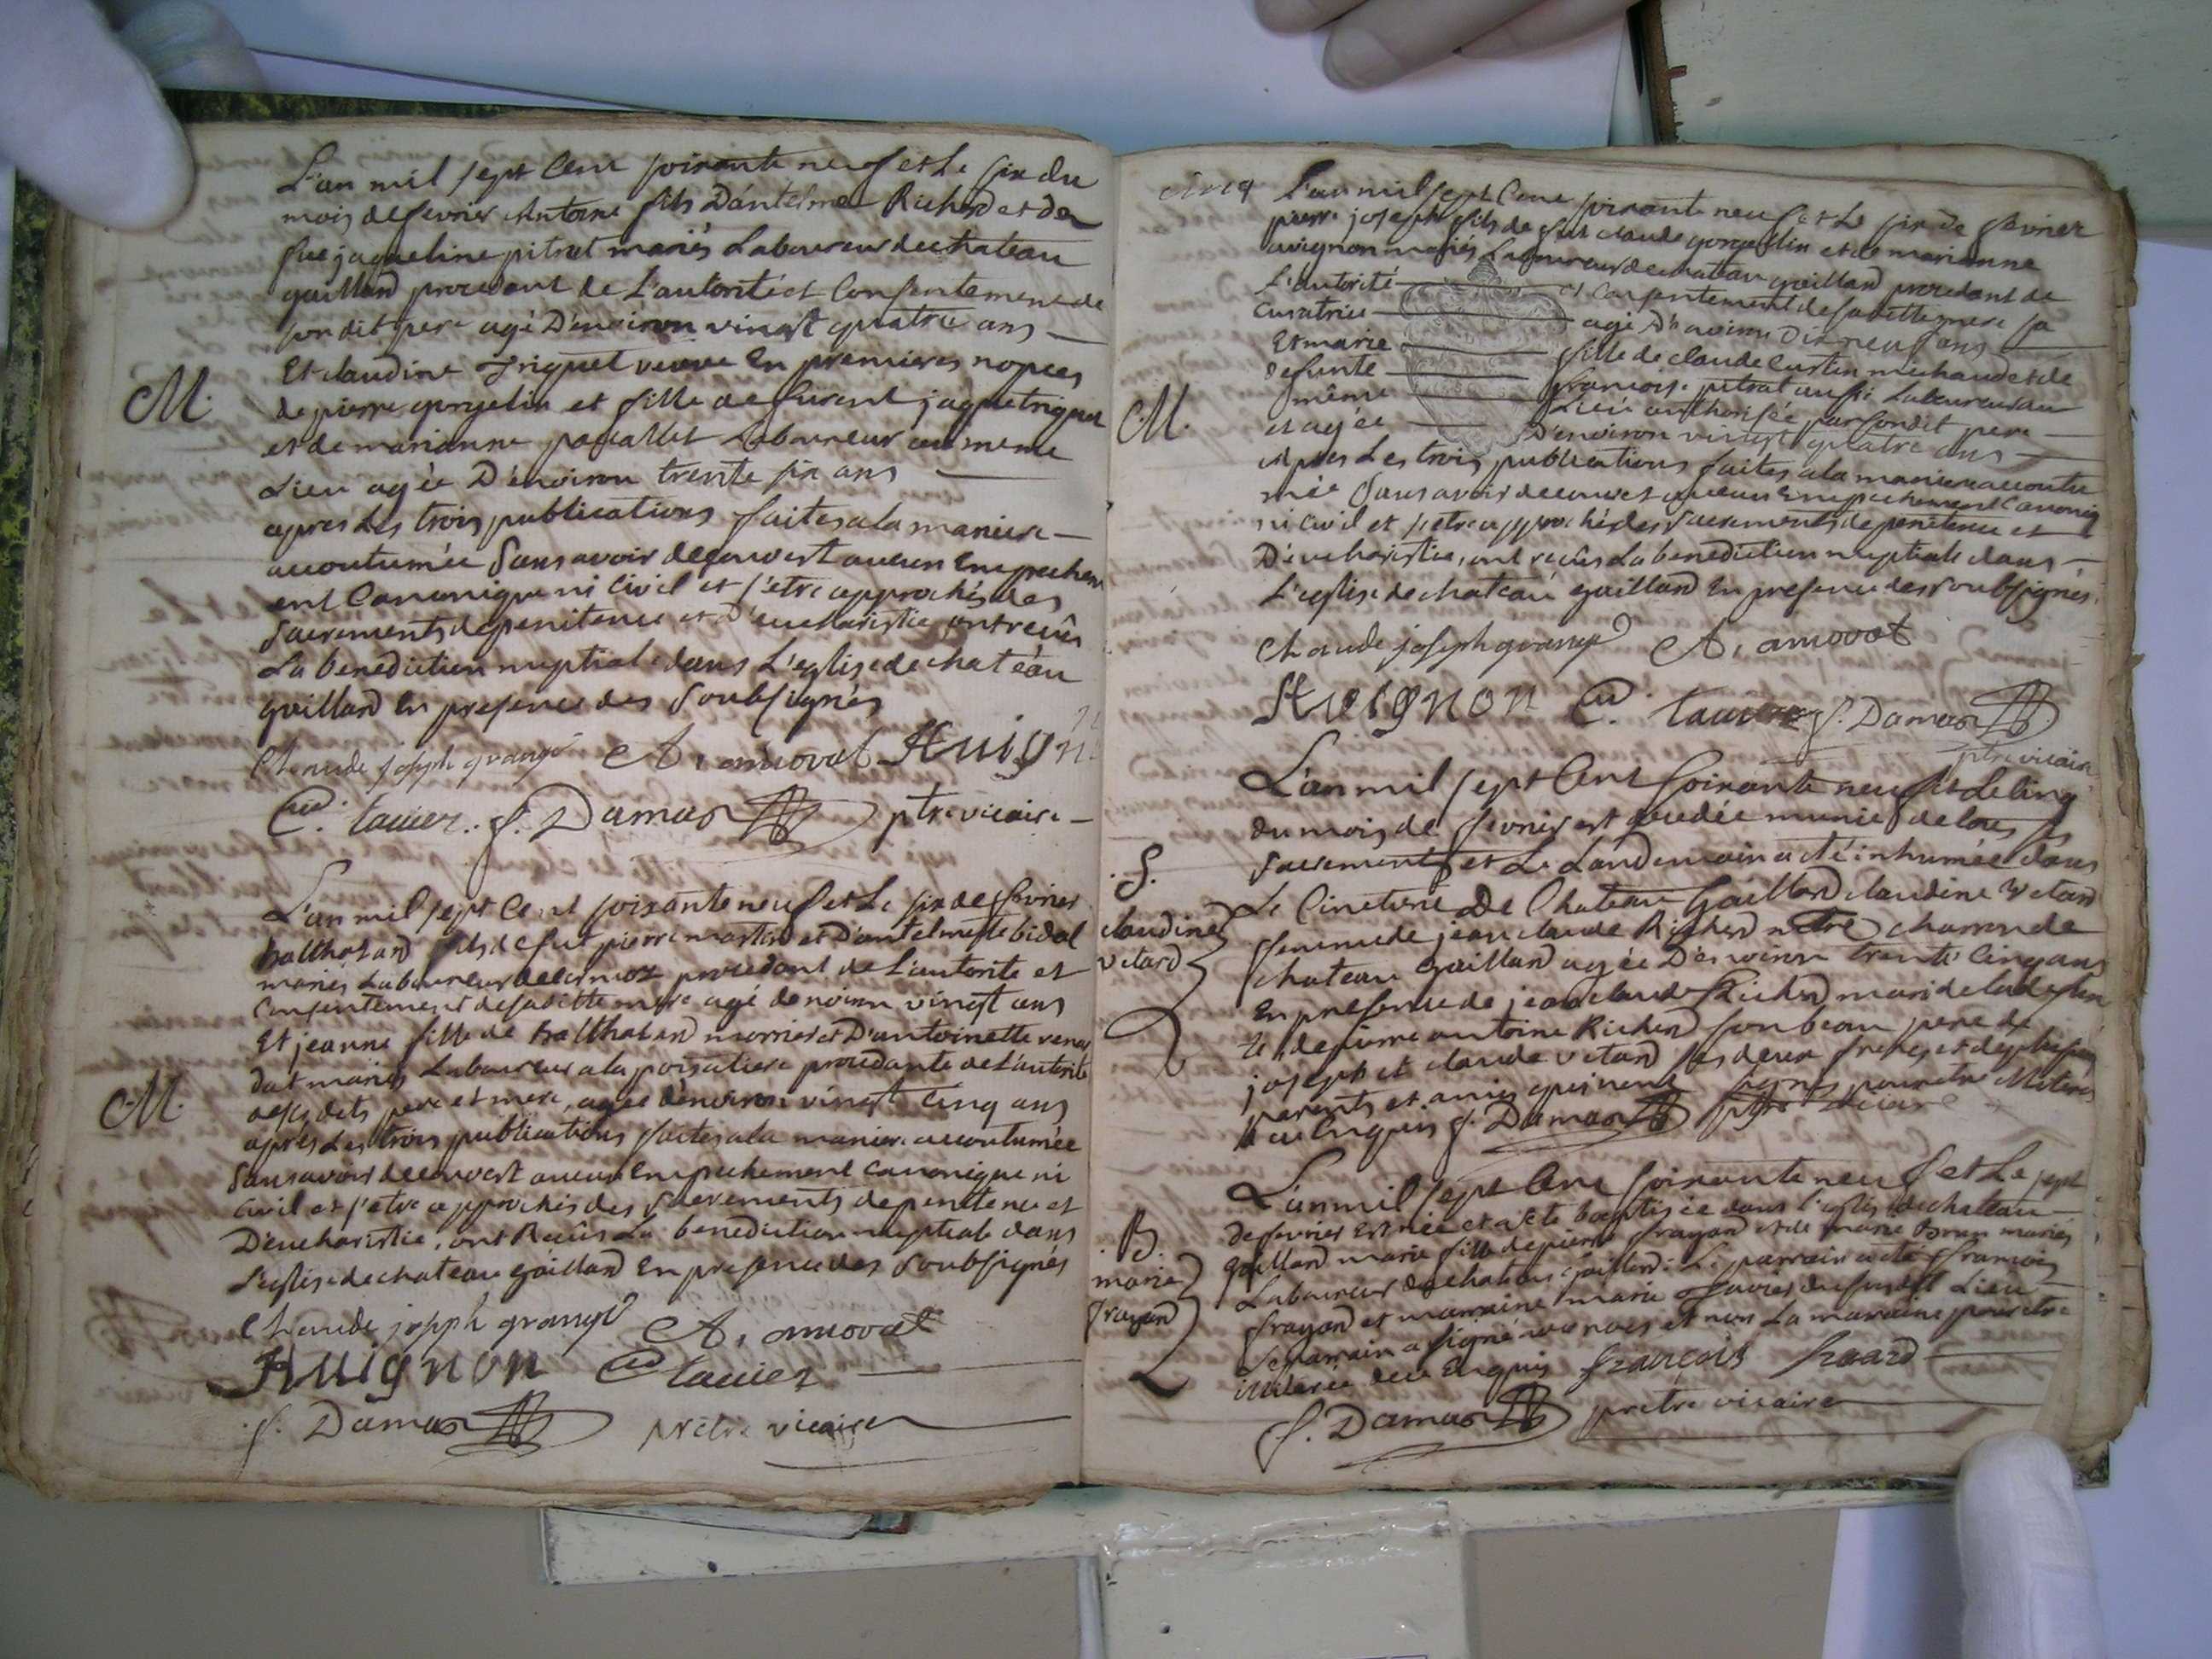 L'an mil sept Cent soixante neuf et Le six du
mois de fevrier Antoine fils D'antelme Richerd et de
fue jaqueline pitrat mariés Laboureur de chateau
gaillard procedant de L'autorité et Consentement de
son dit pere agé D'environ vingt quatre ans
M.
Et claudine triguet veuve En premieres nopces
de pierre gorgelin et fille de furent jaque triguet
et de marianne Laboureur au meme
Lieu agée D'environ trente six ans
apres Les trois publications faites a la maniere
accoutumée Sans avoir decouvert aucun Empechem
ent Canonique ni Civil et s'etre approchés des
Sacrements de penitence et D'eucharistie ont recûs
La benediction nuptiale dans L'eglise de chateau
gaillard En presence des Soubsignés
Claude joseph grange A, amovat Huign
Cu. tavier. f. Damas ptre vicaire
L'an mil sept Cent soixante neuf et Le six de fevrier
balthazard fils de fut pierre martin et D'antelmette bidal
mariés Laboureur de procedant de L'autorite et
Consentement de sa ditte mere agé denviron vingt ans
Et jeanne fille de Balthazard morrier et D'antoinette vena
dat mariés Laboureur a la poisatiere procedante de L'autorité
de ses dits pere et mere, agée d'environ vingt Cinq ans
M.
après Les trois publications faites a la maniere accoutumée
Sans avoir decouvert aucun Empechement Canonique ni
Civil et s'etre approchés des Sacrements de penitence et
D'eucharistie, ont Recûs La benediction nuptiale dans
L'eglise de chateau gaillard En presence des Soubsignés
Claude joseph grange A, amovat
Huignon Cu tavier
f. Damas prêtre vicaire
cinq
L'an mil sept Cent soixante neuf et Le six de fevrier
pierre joseph fils de fut claude gorgelin et de marianne
avignon mariés Laboureur de chateau gaillard procedant de
L'autorité et Consentement de sa ditte mere sa
Curatrice agé D'environ Dix neuf ans
Et marie fille de claude Curtin michaud et de
defunte francoise pitrat aussi Laboureur au
même Lieu authorisée par son dit pere
M.
et agée D'environ vingt quatre ans
Apres Les trois publications faites a la maniere accoutu
mée Sans avoir decouvert aucun Empechement Canoniq
ni Civil et s'etre approchés des Sacrements de penitence et
D'eucharistie, ont recûs La benediction nuptiale dans
L'eglise de chateau gaillard En presence des Soubsignés.
Claude joseph grange A, amovat
Huignon Cu. tavier f. Damas
ptre vicaire
L'an mil sept Cent soixante neuf et Le Cinq
du mois de fevrier est decedée munie de tous ses
Sacrements et Le Landemain a été inhumée dans
.S.
Le Cimetiere De Chateau Gaillard claudine vetard
claudine
vetard
femme de jean claude Richerd charron de
chateau Gaillard agée D'environ trente Cinq ans
En presence de jean claude Richerd mari de la defun
te, de pierre antoine Richerd son beau pere de
joseph et claude vetard ses deux freres et de plusieurs
parents et amis qui n'ont signés pour etre illiteres
de ce Enquis f. Damas ptre vicaire
L'an mil sept Cent soixante neuf et Le sept
de fevrier est née et a été baptisée dans l'eglise de chateau
.B.
marie
frayard
Gaillard marie fille de pierre frayard et de marie Brun mariés
Laboureur de chateau gaillard: Le parrain a été francois
frayard et marraine marie du susdit Lieu
Le parrain a signé avec nous et non La maraine pour etre
illiterée de ce Enquis françois
f. Damas pretre vicaire